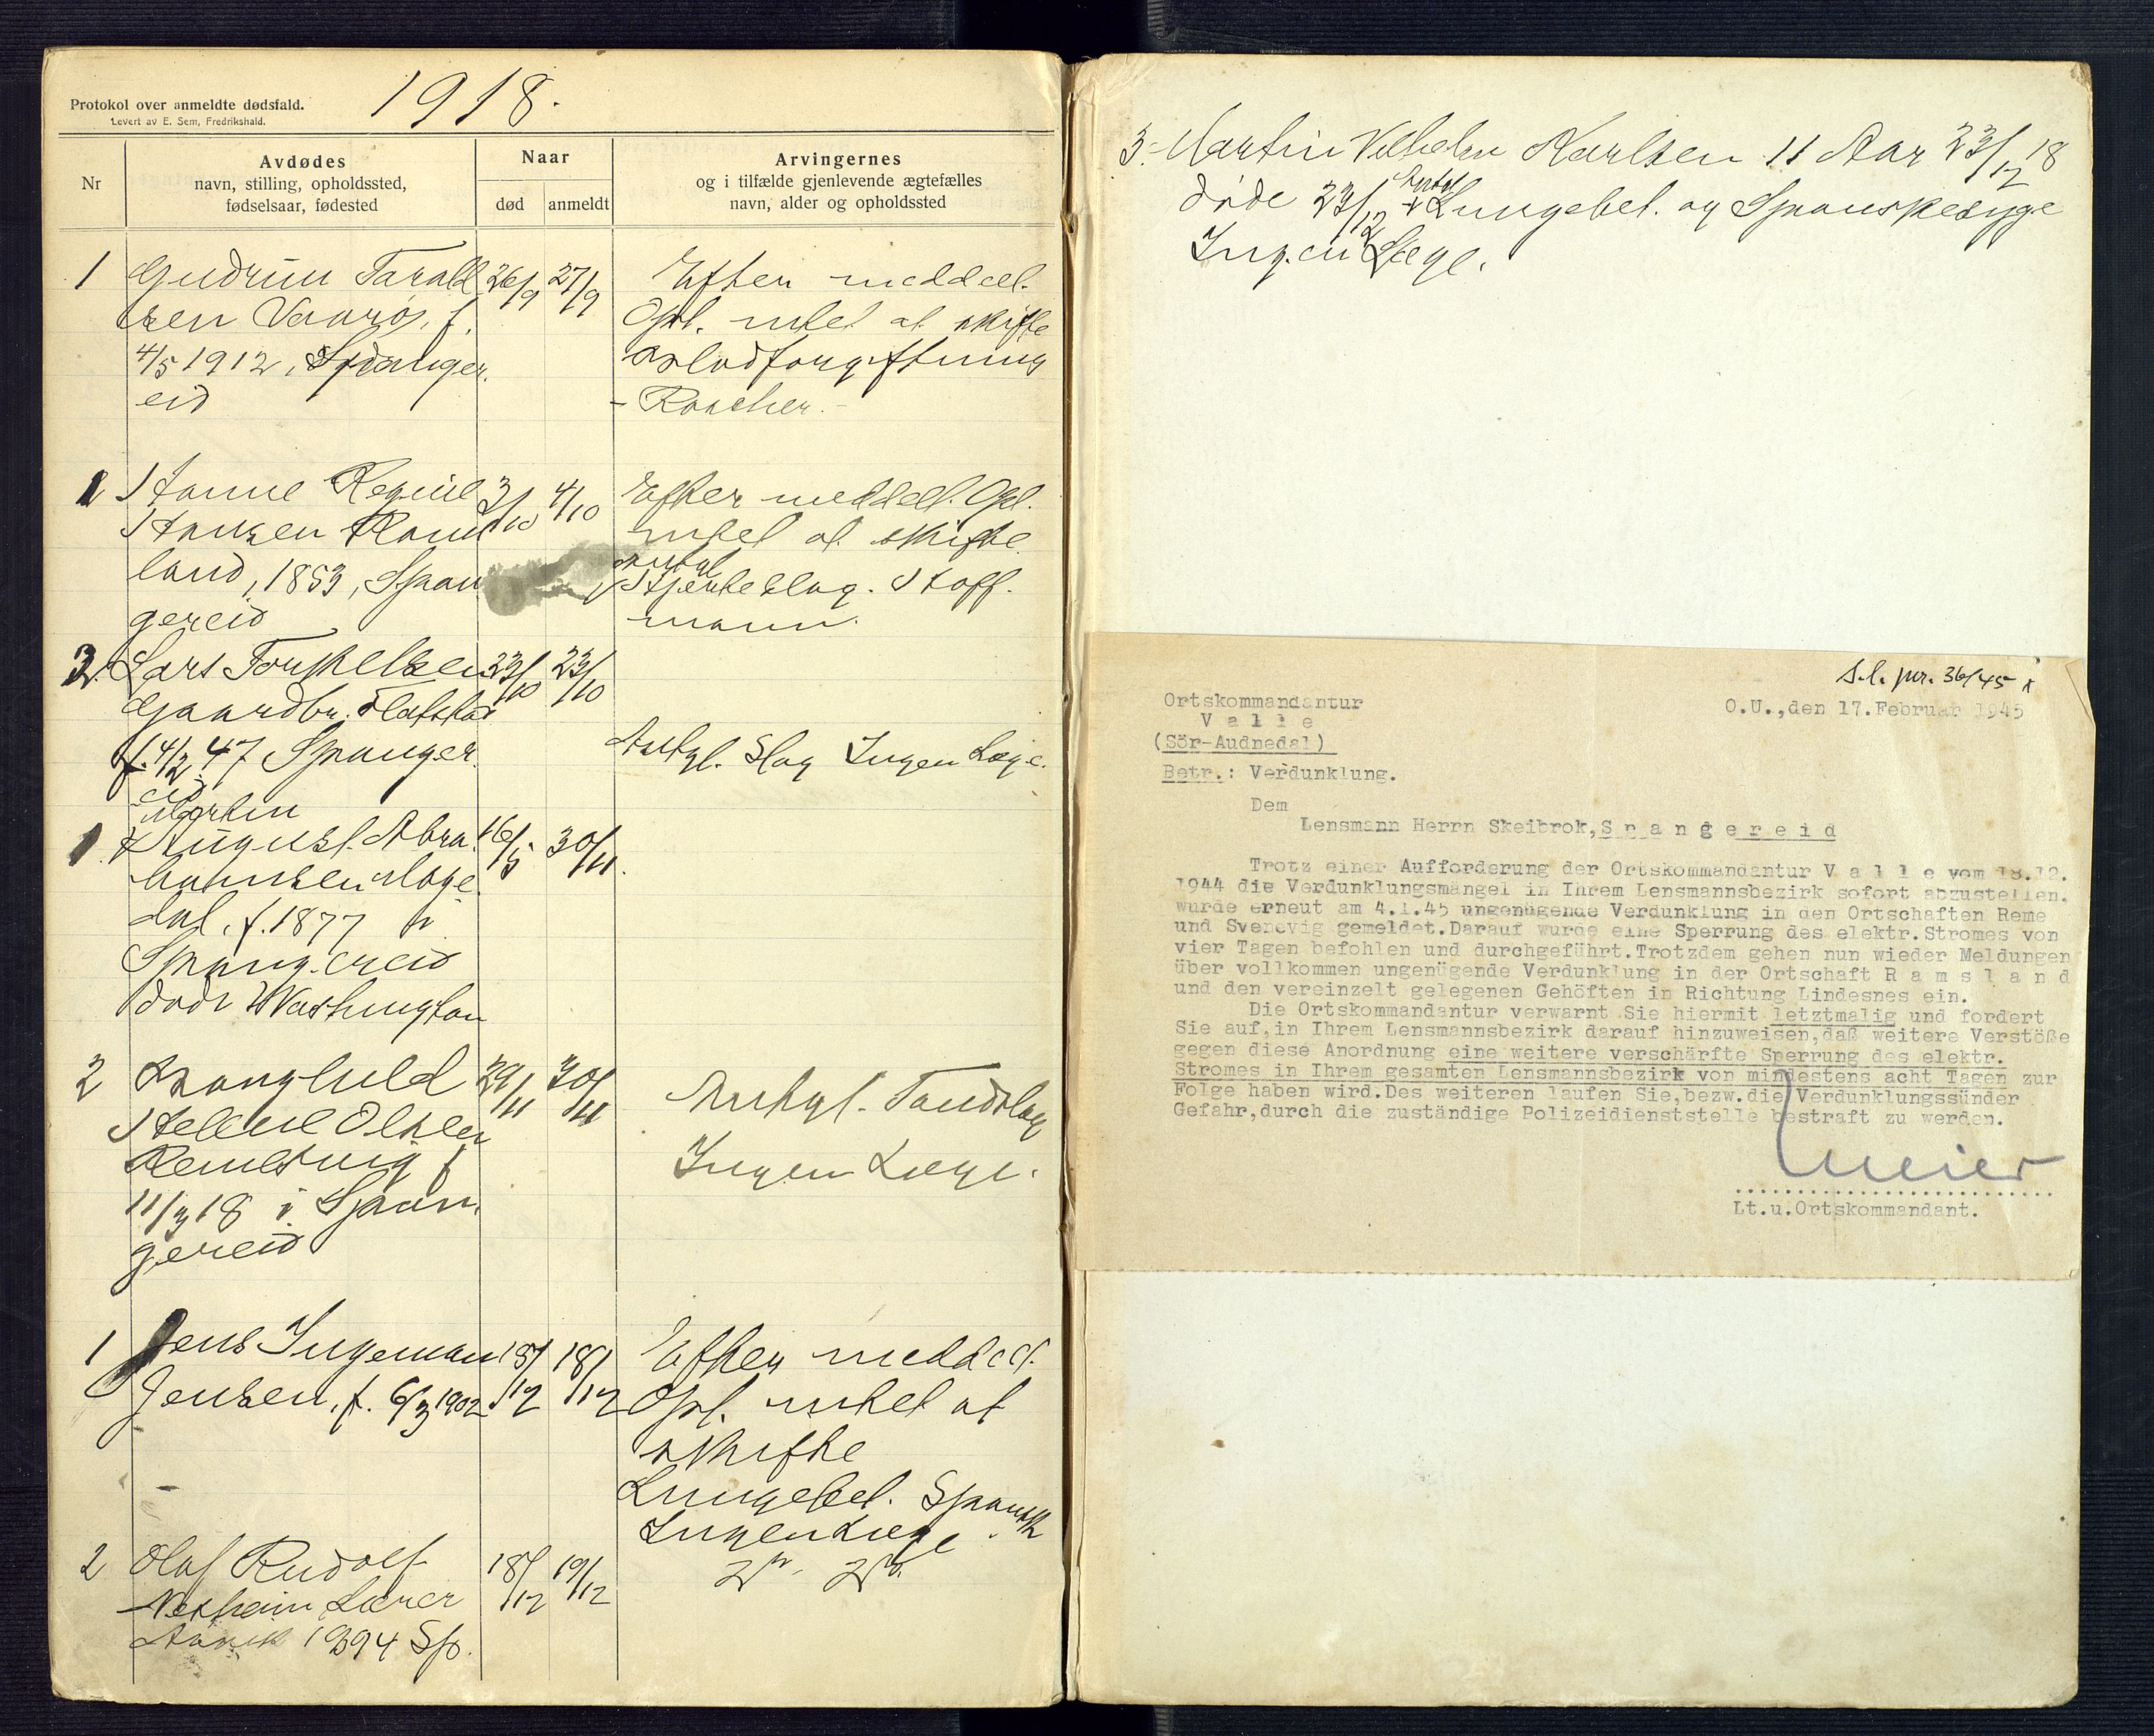 Protokol over anmeldte dødsfald.
Levert av E. Sem, Fredrikshald.
1918.
Nr
Avdødes
navn, stilling, opholdssted,
fødselsaar, fødested
Naar
død
anmeldt
Arvingernes
og i tilfælde gjenlevende ægtefælles
navn, alder og opholdssted
1 Gudrun Tarald 26/9 27/9 Efter meddeel.
sen Vaarø, f. Opl. intet at skifte
4/5 1912, Spanger Blodforgiftning
eid
2 Hanne Regine 3/10 4/10 Efter meddeel. Opl.
Hansen Rams intet at skifte
land, 1853, Span antgl. Hjerteslag. Hoff
gereid mann.
3 Lars Torkelsen 23/10 23/10
Gaardbr.
f. 4/2 47 Spanger Antgl. Slag Ingen Læge.
eid
Morten
1. August Abra 16/5 30/11.
hamsen
dal, f. 1877 i
Spangereid
døde Washington
2 Ragnhild 29/11 30/11 Antgl. Tandslag
Helene Olsen Ingen Læge.
Remesvig f
11/3 18 i Span
gereid
1 Jens Ingeman 18/12 18/12 Efter meddeel.
Jensen, f. 6/3 1902 Opl. intet at
skifte
Lungebet. Spansk
Ingen Læge
2 Olaf Rudolf 18/12 19/12
Lærer
1894 Sp.
3. Martin Vilhelm Karlsen 11 Aar 23/12 18
døde 23/12 antgl Lungebet. og Spanskesyge
Ingen Læge.
36/45
Ortskommandantur
V a l l e
(Sör-Audnedal)
O.U.,den 17.Februar 1945
Betr.: Verdunklung.
Dem
Lensmann Herrn Skeibrok,S p a n g e r e i d
Trotz einer Aufforderung der Ortskommandantur V a l l e vom 18.12.
1944 die Verdunklungsmängel in Ihrem Lensmannsbezirk sofort abzustellen,
wurde erneut am 4.1.45 ungenügende Verdunklung in den Ortschaften Reme
und Svenevig gemeldet.Darauf wurde eine Sperrung des elektr.Stromes von
vier Tagen befohlen und durchgeführt.Trotzdem gehen nun wieder Meldungen
über vollkommen ungenügende Verdunklung in der Ortschaft R a m s l a n d
und den vereinzelt gelegenen Gehöften in Richtung Lindesnes ein.
Die Ortskommandantur verwarnt Sie hiermit letztmalig und fordert
Sie auf,in Ihrem Lensmannsbezirk darauf hinzuweisen,daß weitere Verstöße
gegen diese Anordnung eine weitere verschärfte Sperrung des elektr.
Stromes in Ihrem gesamten Lensmannsbezirk von mindestens acht Tagen zur
Folge haben wird.Des weiteren laufen Sie,bezw.die Verdunklungssünder
Gefahr,durch die zuständige Polizeidienststelle bestraft zu werden.
Meier
Lt.u.Ortskommandant.